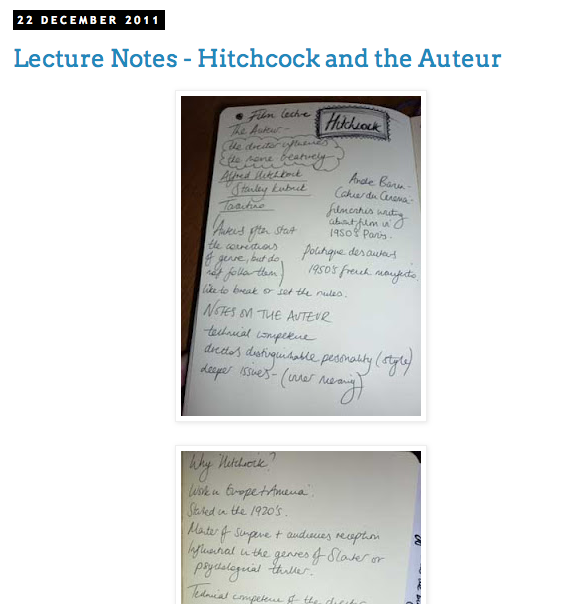 22 DECEMBER 2011
Lecture Notes - Hitchcock and the Auteur
Film lectre
Hitchcock
The Auteur -
the director influences
the movie creatively
Alfred Hitchcock
Stanley Kubrik
Tarantino
Andre Bazin -
Cahier du Cinema -
film critics writing
about film in
1950's Paris.
(Auteurs often start
the conventions
of genre, but do
not follow them)
politique des auteurs
1950's french manifesto
like to break or set the rules.
NOTES ON THE AUTEUR
technical competence
directors distinguishable personality (style)
deeper issues - (inner meaning)
Why 'Hitchcock'?
Work in Europe + America.
Started in the 1920's.
Master of suspense + audiences reception
Influential in the genres of Slasher or
psychological thriller.
Technical competence of the director